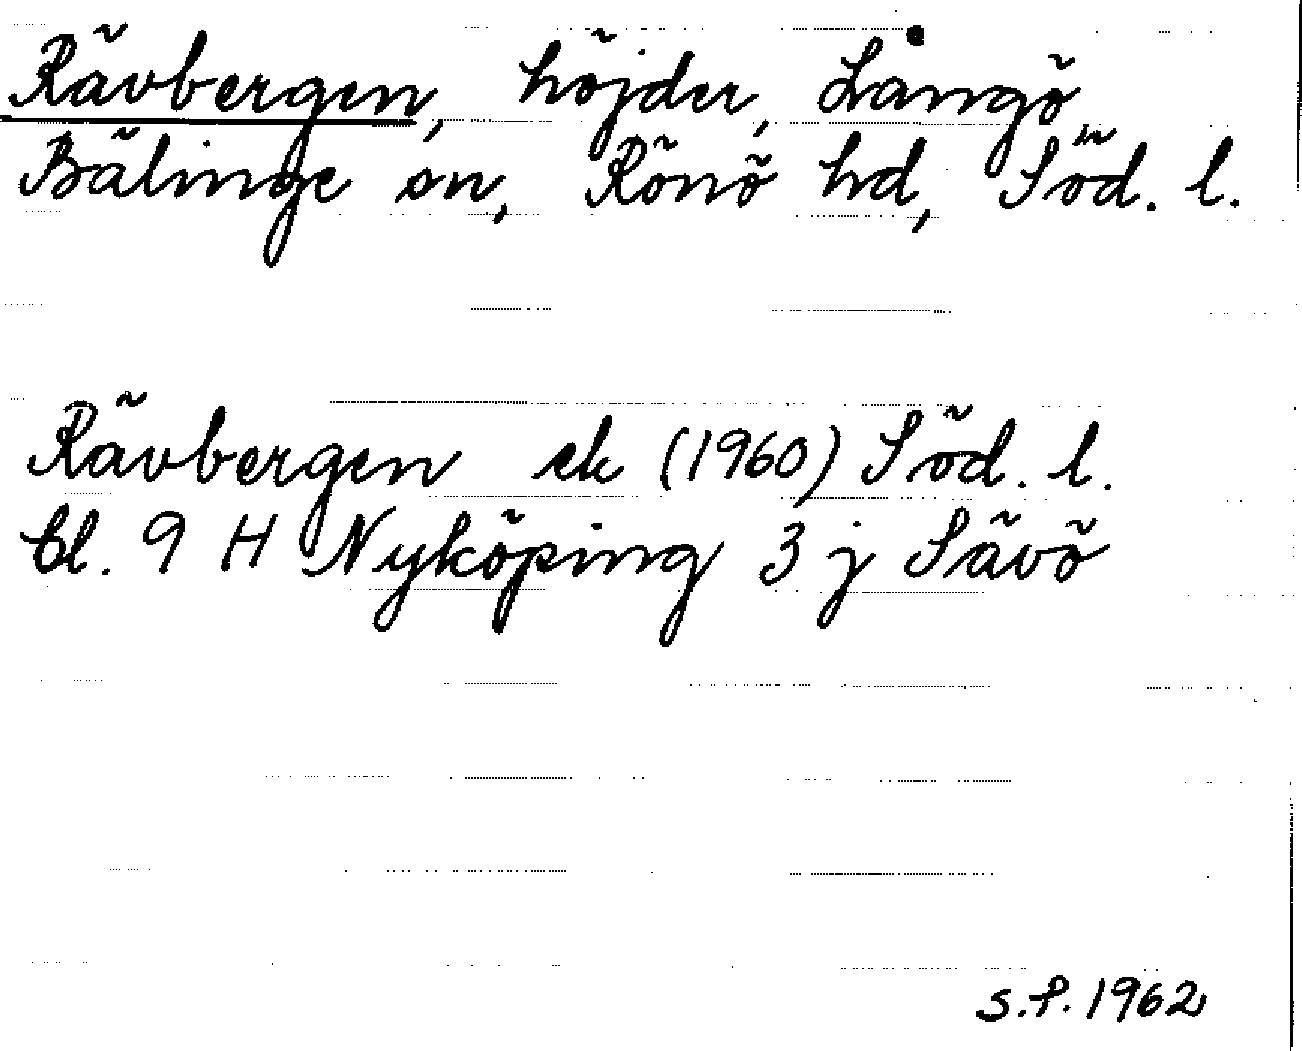 Rävbergen, höjder, Långö
Bälinge sn, Rönö hd, Söd. l.
Rävbergen ek (1960) Söd. l.
bl. 9 H Nyköping 3 j Sävö
S.P. 1962